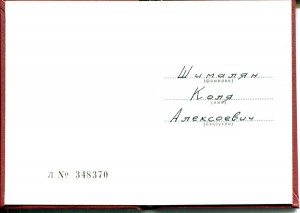 Шималян
(фамилия)
Коля
(имя)
Алексоевич
(отчество)
Л № 348370